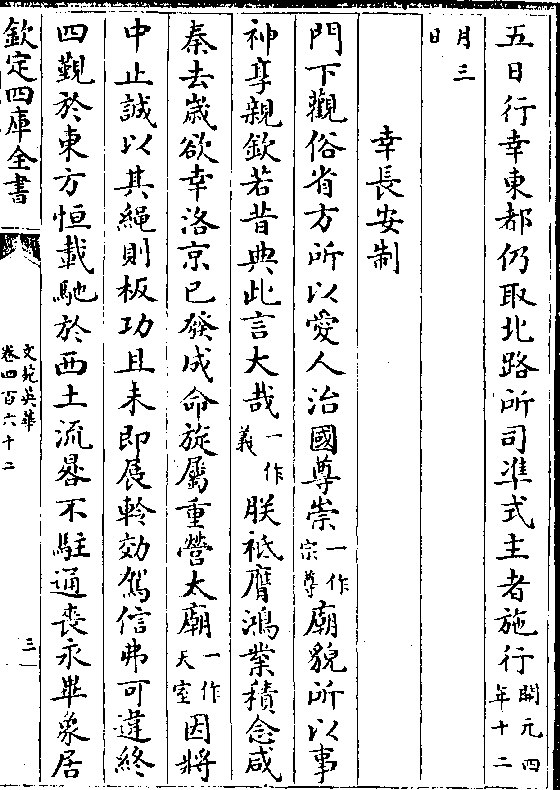 五日行幸東都仍取北路所司準式主者施行開元四年十二
月三日
幸長安制
門下觀俗省方所以愛人治國尊崇一作宗尊廟貌所以事
神享親欽若昔典此言大哉一作義朕祗膺鴻業積念咸
秦去歲欲幸洛京已發成命旋屬重營太廟一作天室因將
中止誠以其繩則板功且未即展軨効駕信弗可違終
四覲於東方恒載馳於西土流晷不駐通喪永畢象居
欽定四庫全書
文苑英華
卷四百六十二
三